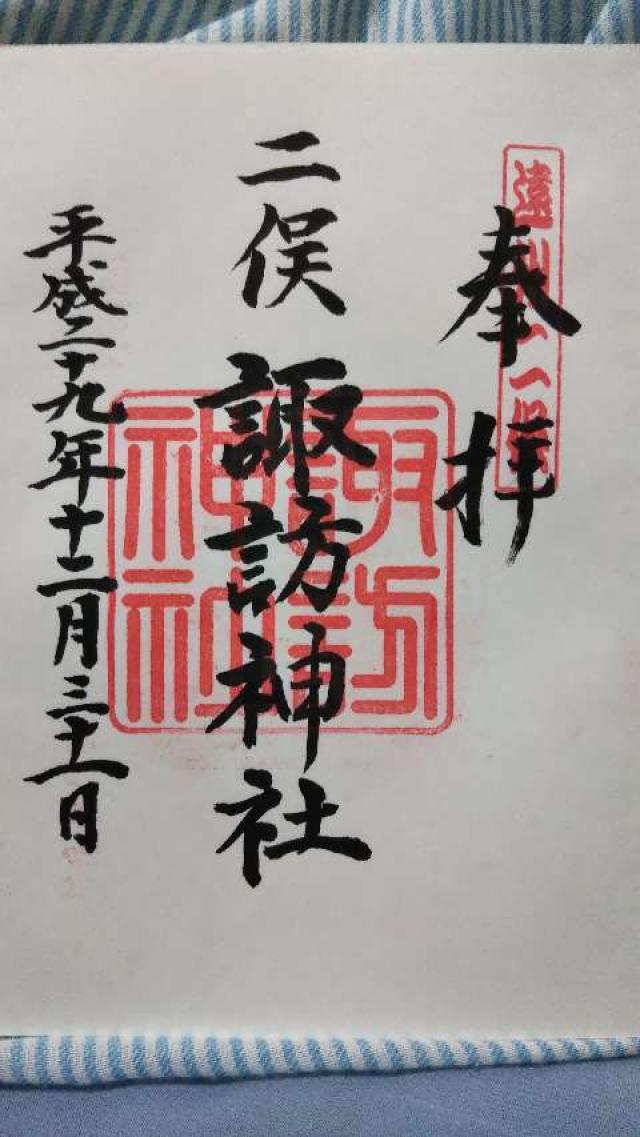 奉拝
二俣 諏訪神社
諏訪神社
平成二十九年十二月三十一日